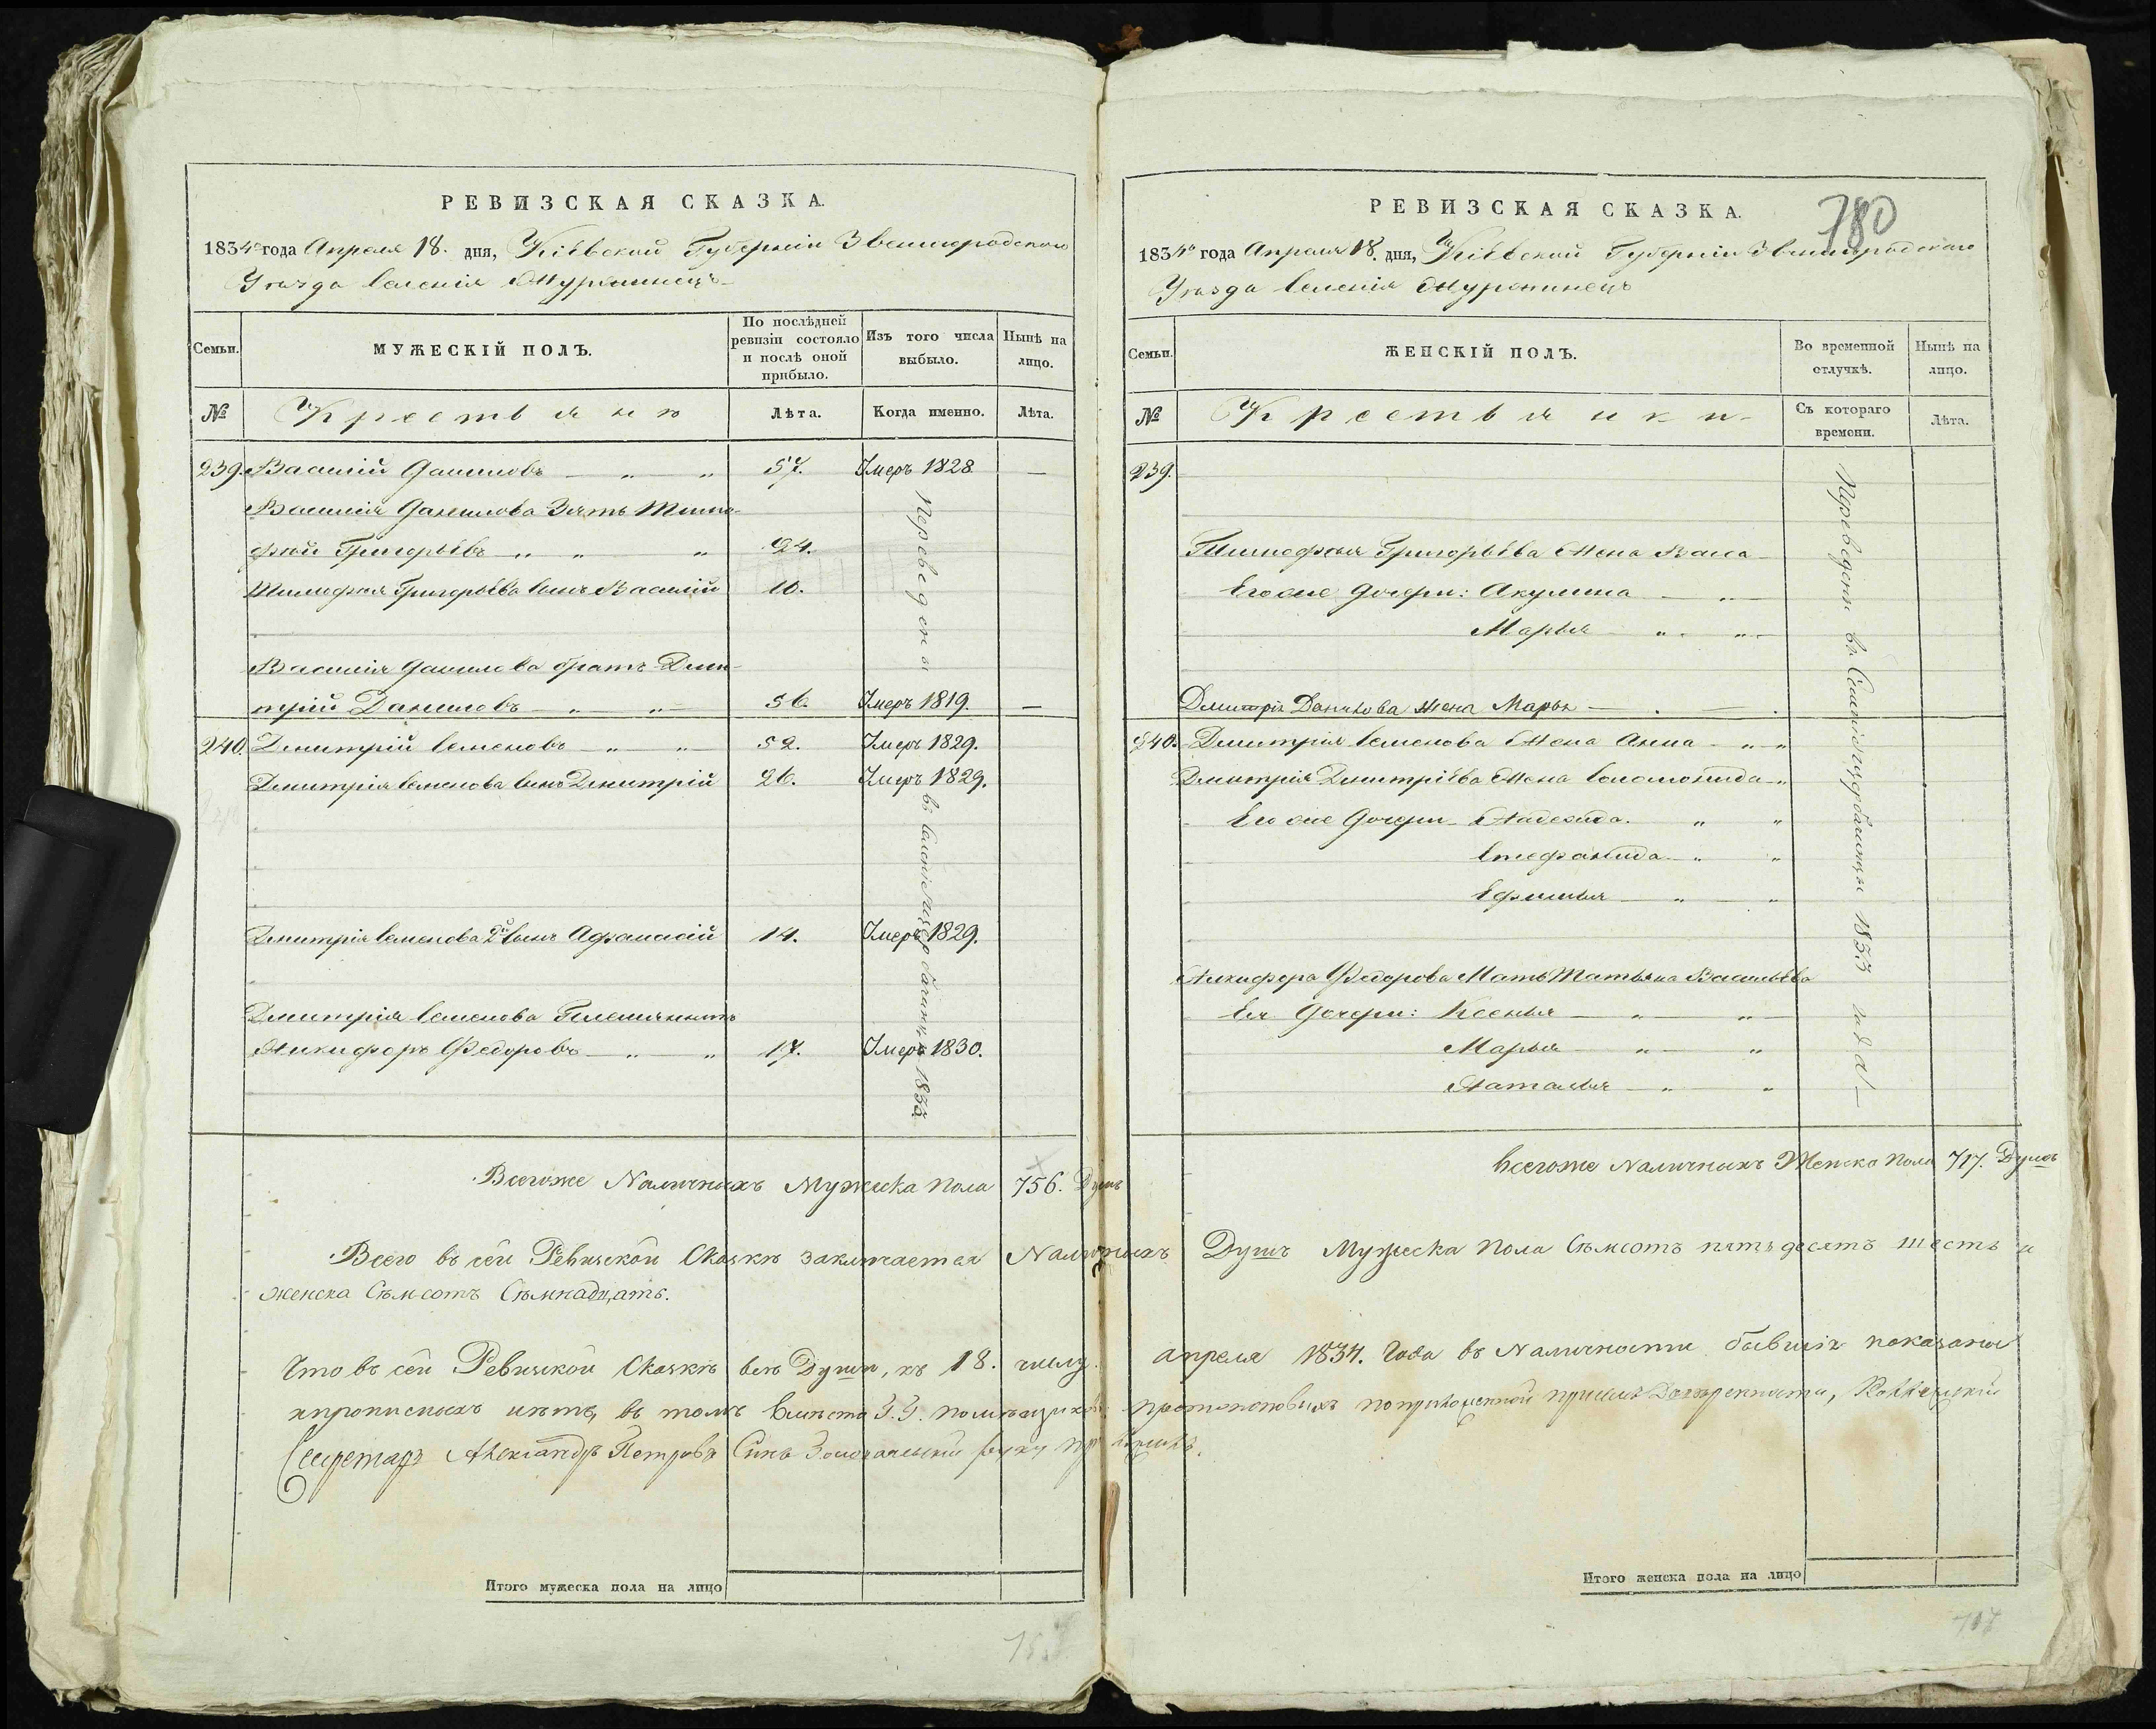 РЕВИЗСКАЯ СКАЗКА.
1834го года Апреля 18. дня, Кіевской Губерніи Звенигородскаго
Уезда Селенія Журжинецъ
Семьи.
МУЖЕСКІЙ ПОЛЪ.
По послѣдней ревизіи состояло и послѣ оной прибыло.
Изъ того числа выбыло.
Нынѣ на лицо.
№
Крестьяне
Лѣта.
Когда именно.
Лѣта.
239. Василій Даниловъ — „ „ 57. Умеръ 1828 —
Василія Данилова Зять Тимо-
фей Григорьевъ „ „ „ 24.
Тимофея Григорьева Сынъ Василій 10.
Василія Данилова братъ Дми-
трій Даниловъ — „ „ 56. Умеръ 1819. —
240. Димитрій Семеновъ — „ „ 52. Умеръ 1829.
Димитрія Семенова Сынъ Димитрій 26. Умеръ 1829.
Димитрія Семенова 2й Сынъ Афанасій 14. Умеръ 1829.
Димитрія Семенова Племянникъ
Никифоръ Федоровъ — „ „ 17. Умеръ 1830.
Переведены
въ Селеніе 1833.
Всегоже Наличныхъ Мужеска пола 756. Душъ
РЕВИЗСКАЯ СКАЗКА.
780
1834го года Апреля 18. дня, Кіевской Губерніи Звенигородскаго
Уезда Селенія Журжинецъ
Семьи.
ЖЕНСКІЙ ПОЛЪ.
Во временной отлучкѣ.
Нынѣ на лицо.
№
Крестьянки
Съ котораго времени.
Лѣта.
239.
Тимофея Григорьева Жена Васса —
Егоже Дочери: Акулина — „ —
Марья — „ „
Дмитрія Данилова жена Марья — . .
240. Димитрія Семенова Жена Анна — „ „
Димитрія Димитріева Жена Соломонида „
Его же Дочери Надежда. „ „
Стефанида — „ „
Ефимья — „ — „
Никифора Федорова Мать Татьяна Васильева
Ея Дочери: Ксенья — „ „
Марья — „ „
Наталья — „ „
Переведены въ Селеніе 1833 года —
Всегоже Наличныхъ Женска пола 717. Душъ
Всего въ сей Ревизской Сказкѣ заключается Наличныхъ Душъ Мужеска пола Съмсотъ пятьдесятъ шесть и
женска Съмсотъ Съмнадцать.
Что въ сей Ревизской Сказкѣ всѣ Души, къ 18. числу апреля 1834. Года въ Наличности бывшія показаны
и прописныхъ нѣтъ, въ томъ вместо Г.Г. помѣщиковъ по приложенной при семъ Довѣренности,
Секретарь Александръ Петровъ Сынъ руку приложилъ.
Итого мужеска пола на лицо
Итого женска пола на лицо
717